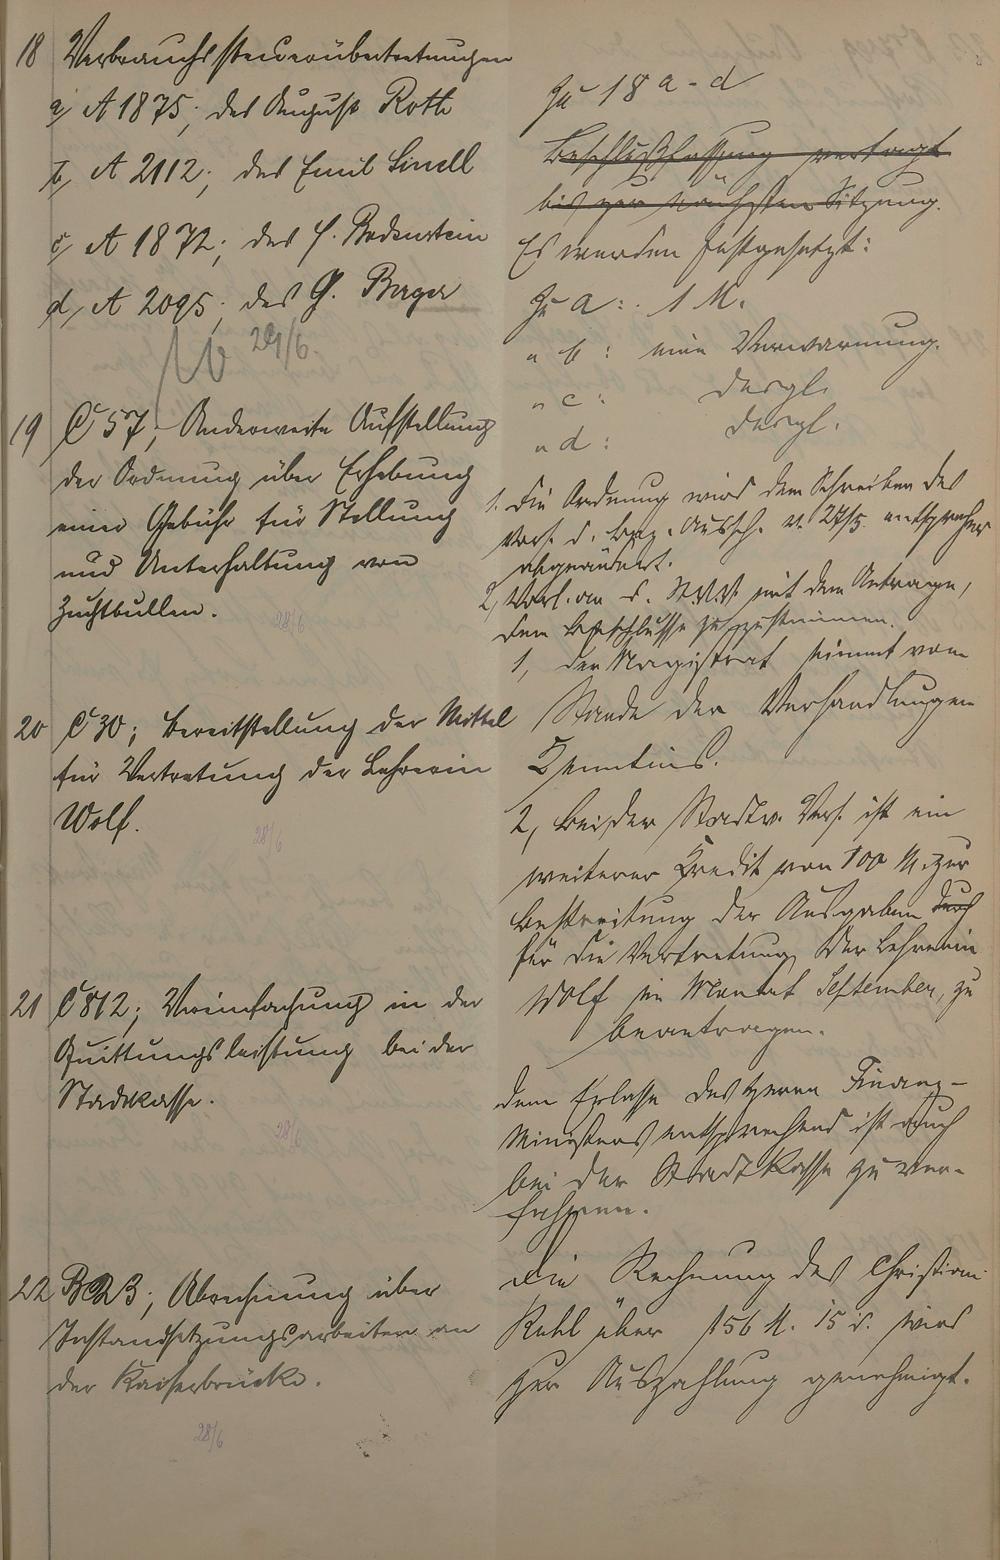 18 Verbrauchssteuerübertretungen
a, A 1875; des August Roth
b, A 2112; des Emil Linell
c, A 1872; des H. Bodenstein
d, A 2095; des G. Berger
29/6.
Zu 18 a-d
Beschlußfassung vertagt
bis zur nächsten Sitzung.
Es werden festgesetzt:
Zu a: 1 M.
" b: eine Verwarnung.
" c: desgl.
" d: desgl.
19 C 57; Anderweite Aufstellung
der Ordnung über Erhebung
einer Gebühr für Stellung
und Unterhaltung von
Zuchtbullen.
28/6
1. Die Ordnung wird dem Schreiben des
Vors. d. Bez. Aussch. v. 27/5. entsprechend
abgeändert.
2, Vorl. an d. St.V.V. mit dem Antrage,
dem Beschlusse zuzustimmen.
20 C 30; Bereitstellung der Mittel
für Vertretung der Lehrerin
Wolf.
28/6
1, der Magistrat nimmt vom
Stande der Verhandlungen
Kenntnis.
2, Bei der Stadtv. Vers. ist ein
weiterer Kredit von 100 M. zur
Bestreitung der Ausgaben durch
für die Vertretung der Lehrerin
Wolf im Monat September, zu
beantragen.
21 C 812; Vereinfachung in der
Quittungsleistung bei der
Stadtkasse.
28/6
Dem Erlasse des Herrn Finanz-
Ministers entsprechend ist auch
bei der Stadtkasse zu ver-
fahren.
22 B 23; Abrechnung über
Instandsetzungsarbeiten an
der Kaiserbrücke.
28/6
Die Rechnung des Christian
Ruhl über 156 M. 15 d. wird
zur Auszahlung genehmigt.